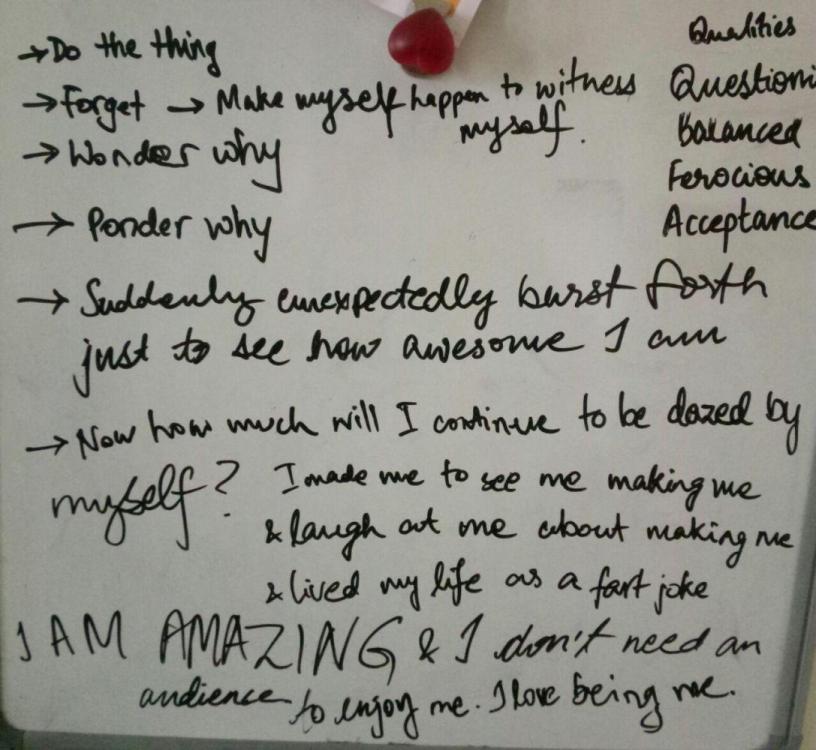 → Do the thing
→ Forget → Make myself happen to witness
myself.
→ Wonder why
→ Ponder why
→ Suddenly unexpectedly burst forth
just to see how awesome I am
→ Now how much will I continue to be dazed by
myself? I made me to see me making me
& laugh at me about making me
& lived my life as a fart joke
I AM AMAZING & I don't need an
audience to enjoy me. I love being me.
Qualities
Questioni
Balanced
Ferocious
Acceptance